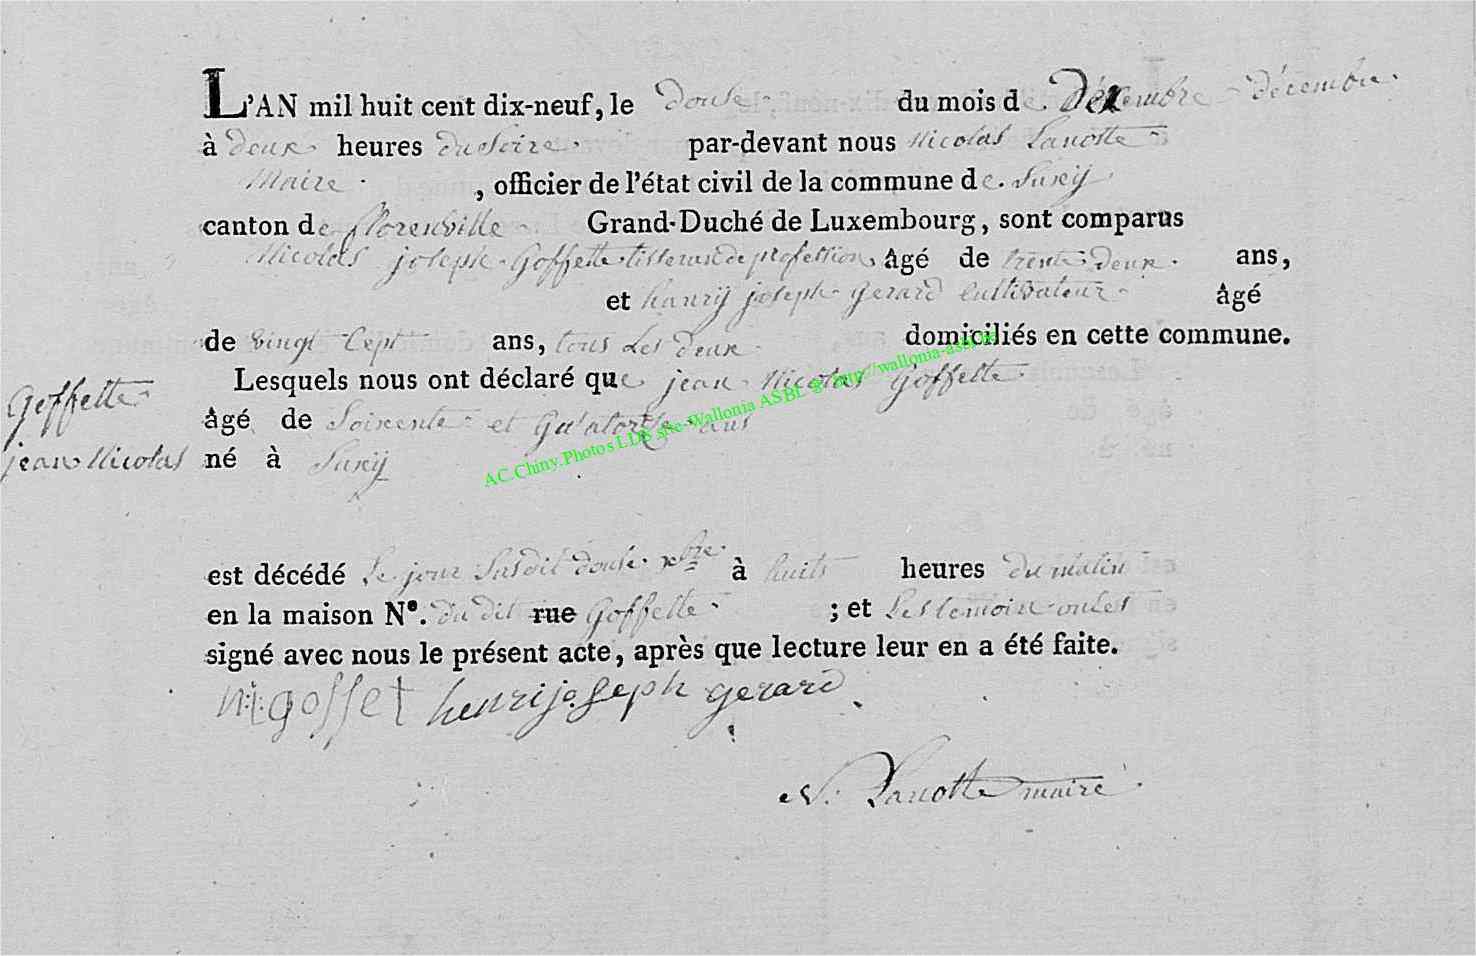 L'AN mil huit cent dix-neuf, le douse du mois de Décembre décembre
à deux heures du Soire par-devant nous Nicolas Lanotte
Maire, officier de l'état civil de la commune de Suxÿ
canton de florenville Grand-Duché de Luxembourg, sont comparus
Nicolas joseph Goffette tisserant de profession âgé de trente deux ans,
et hanrÿ joseph gerard Cultivateur âgé
de vingt Cept ans, tous Les deux domiciliés en cette commune.
Lesquels nous ont déclaré que jean Nicolas Goffette
Goffette
jean Nicolas
âgé de Soixente et Qu'atorse ans
né à Suxÿ
AC.Chiny.Photos LDB site-Wallonia ASBL @ http://wallonia-asbl.be
est décédé Le jour Susdit douse xbre à huits heures du matin
en la maison N°. du dit rue Goffette ; et Les temoin ontes
signé avec nous le présent acte, après que lecture leur en a été faite.
n:j:goffet henrij joseph gerard
N. Lanotte maire